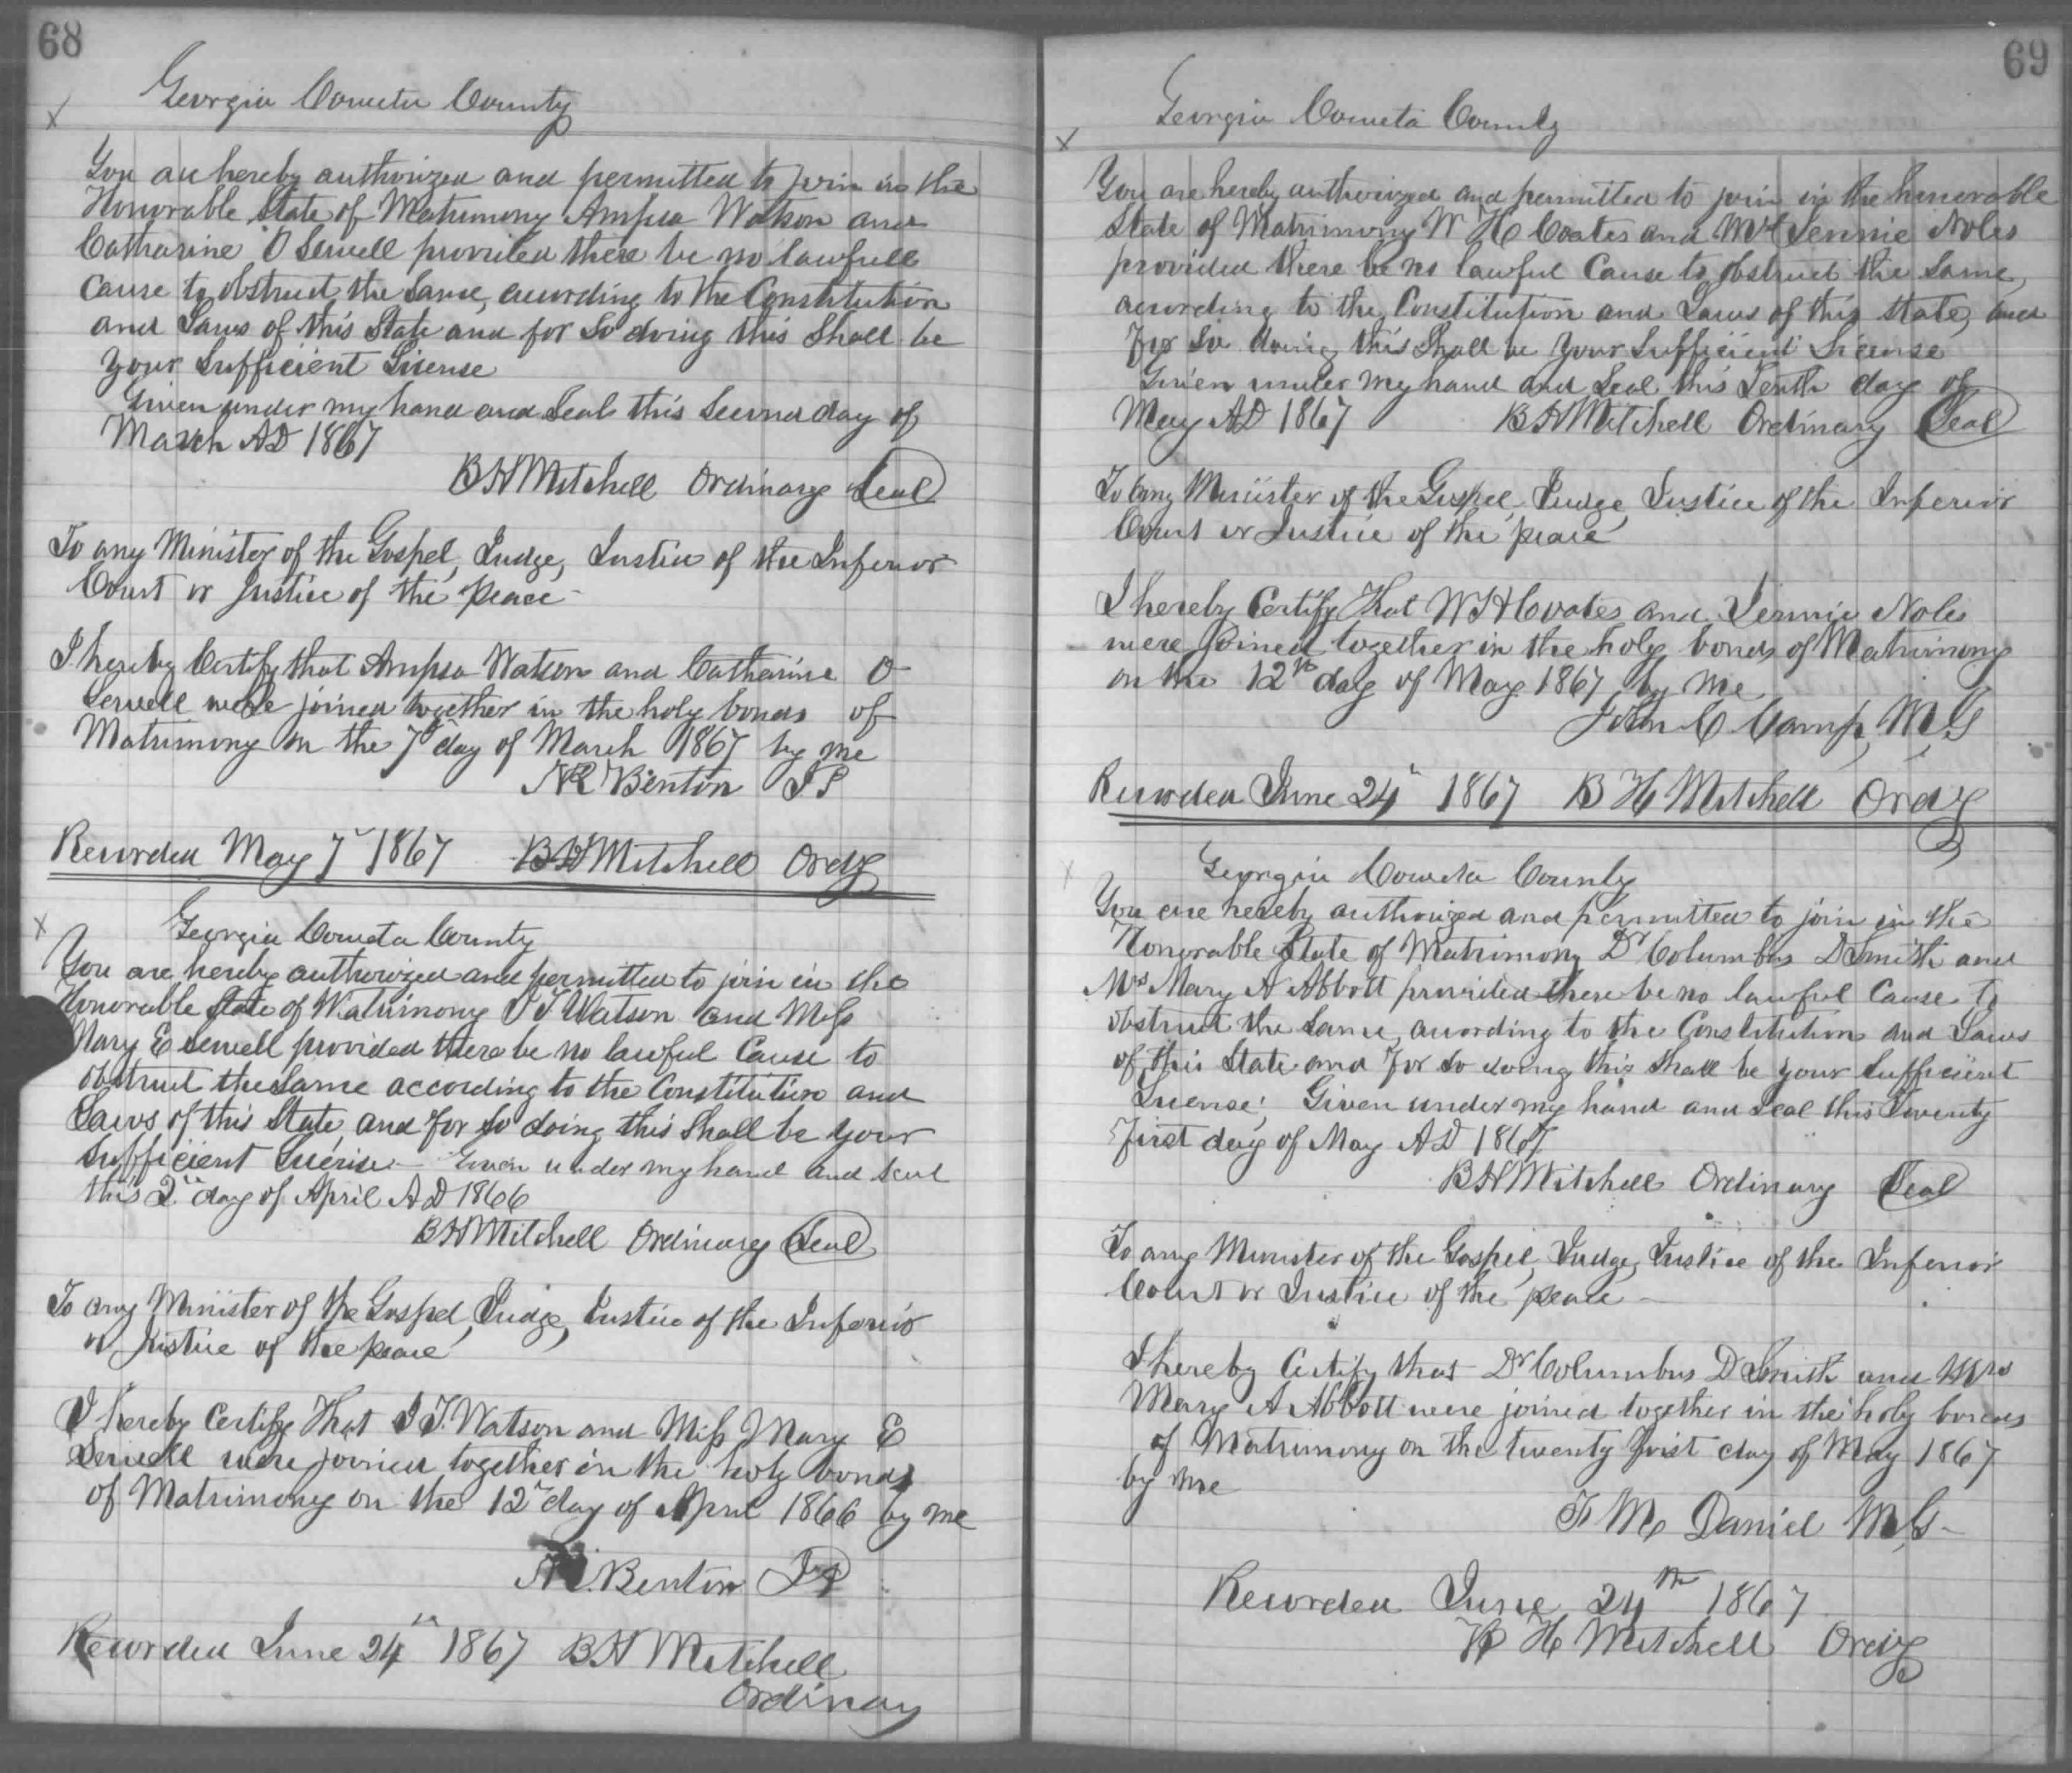 68
Georgia Coweta County
You are hereby authorized and permitted to join in the
Honorable State of Matrimony Ampsa Watson and
Catharine O Sewell provided there be no lawfull
Cause to obstruct the Same, according to the Constitution
and Laws of this State and for So doing this Shall be
your Sufficient License
Given under my hand and Seal this Second day of
March AD 1867
B H Mitchell Ordinary Seal
To any Minister of the Gospel, Judge, Justice of the Inferior
Court or Justice of the peace
I hereby Certify that Ampsa Watson and Catharine O
Sewell were joined together in the holy bonds of
Matrimony on the 7th day of March 1867 by me
N R Benton J P
Recorded May 7th 1867 B H Mitchell Ordy
Georgia Coweta County
You are hereby authorized and permitted to join in the
Honorable State of Matrimony J T Watson and Miss
Mary E Sewell provided there be no lawful Cause to
obstruct the Same according to the Constitution and
Laws of this State, and for So doing this Shall be your
Sufficient License Given under my hand and Seal
this 2nd day of April AD 1866
B H Mitchell Ordinary Seal
To any Minister of the Gospel, Judge, Justice of the Inferior
or Justice of the peace
I hereby Certify That J T. Watson and Miss Mary E
Sewell were joined together in the holy bonds
of Matrimony on the 12th day of April 1866 by me
Benton J P
Recorded June 24th 1867 B H Mitchell
Ordinary
69
Georgia Coweta County
You are hereby authorized and permitted to join in the honorable
State of Matrimony W H Coates and Jennie Noles
provided there be no lawful Cause to obstruct the Same,
according to the Constitution and Laws of this State, and
For So doing this Shall be your Sufficient License
Given under my hand and Seal this Tenth day of
May AD 1867 B H Mitchell Ordinary Seal
To any Minister of the Gospel, Judge, Justice of the Inferior
Court or Justice of the peace
I hereby Certify That W H Coates and Jennie Noles
were joined together in the holy bonds of Matrimony
on the 12th day of May 1867 by me
John C Camp, M G
Recorded June 24th 1867 B H Mitchell Ordy
Georgia Coweta County
You are hereby authorized and permitted to join in the
Honorable State of Matrimony Dr Columbus D Smith and
Mrs Mary A Abbott provided there be no lawful Cause to
obstruct the Same, according to the Constitution and Laws
of this State and For So doing this Shall be your Sufficient
License. Given under my hand and Seal this Twenty
First day of May AD 1867
B H Mitchell Ordinary Seal
To any Minister of the Gospel, Judge, Justice of the Inferior
Court or Justice of the peace
I hereby Certify that Dr Columbus D Smith and Mrs
Mary A Abbott were joined together in the holy bonds
of Matrimony on the twenty first day of May 1867
by me
F M Daniel M G
Recorded June 24th 1867
B H Mitchell Ordy